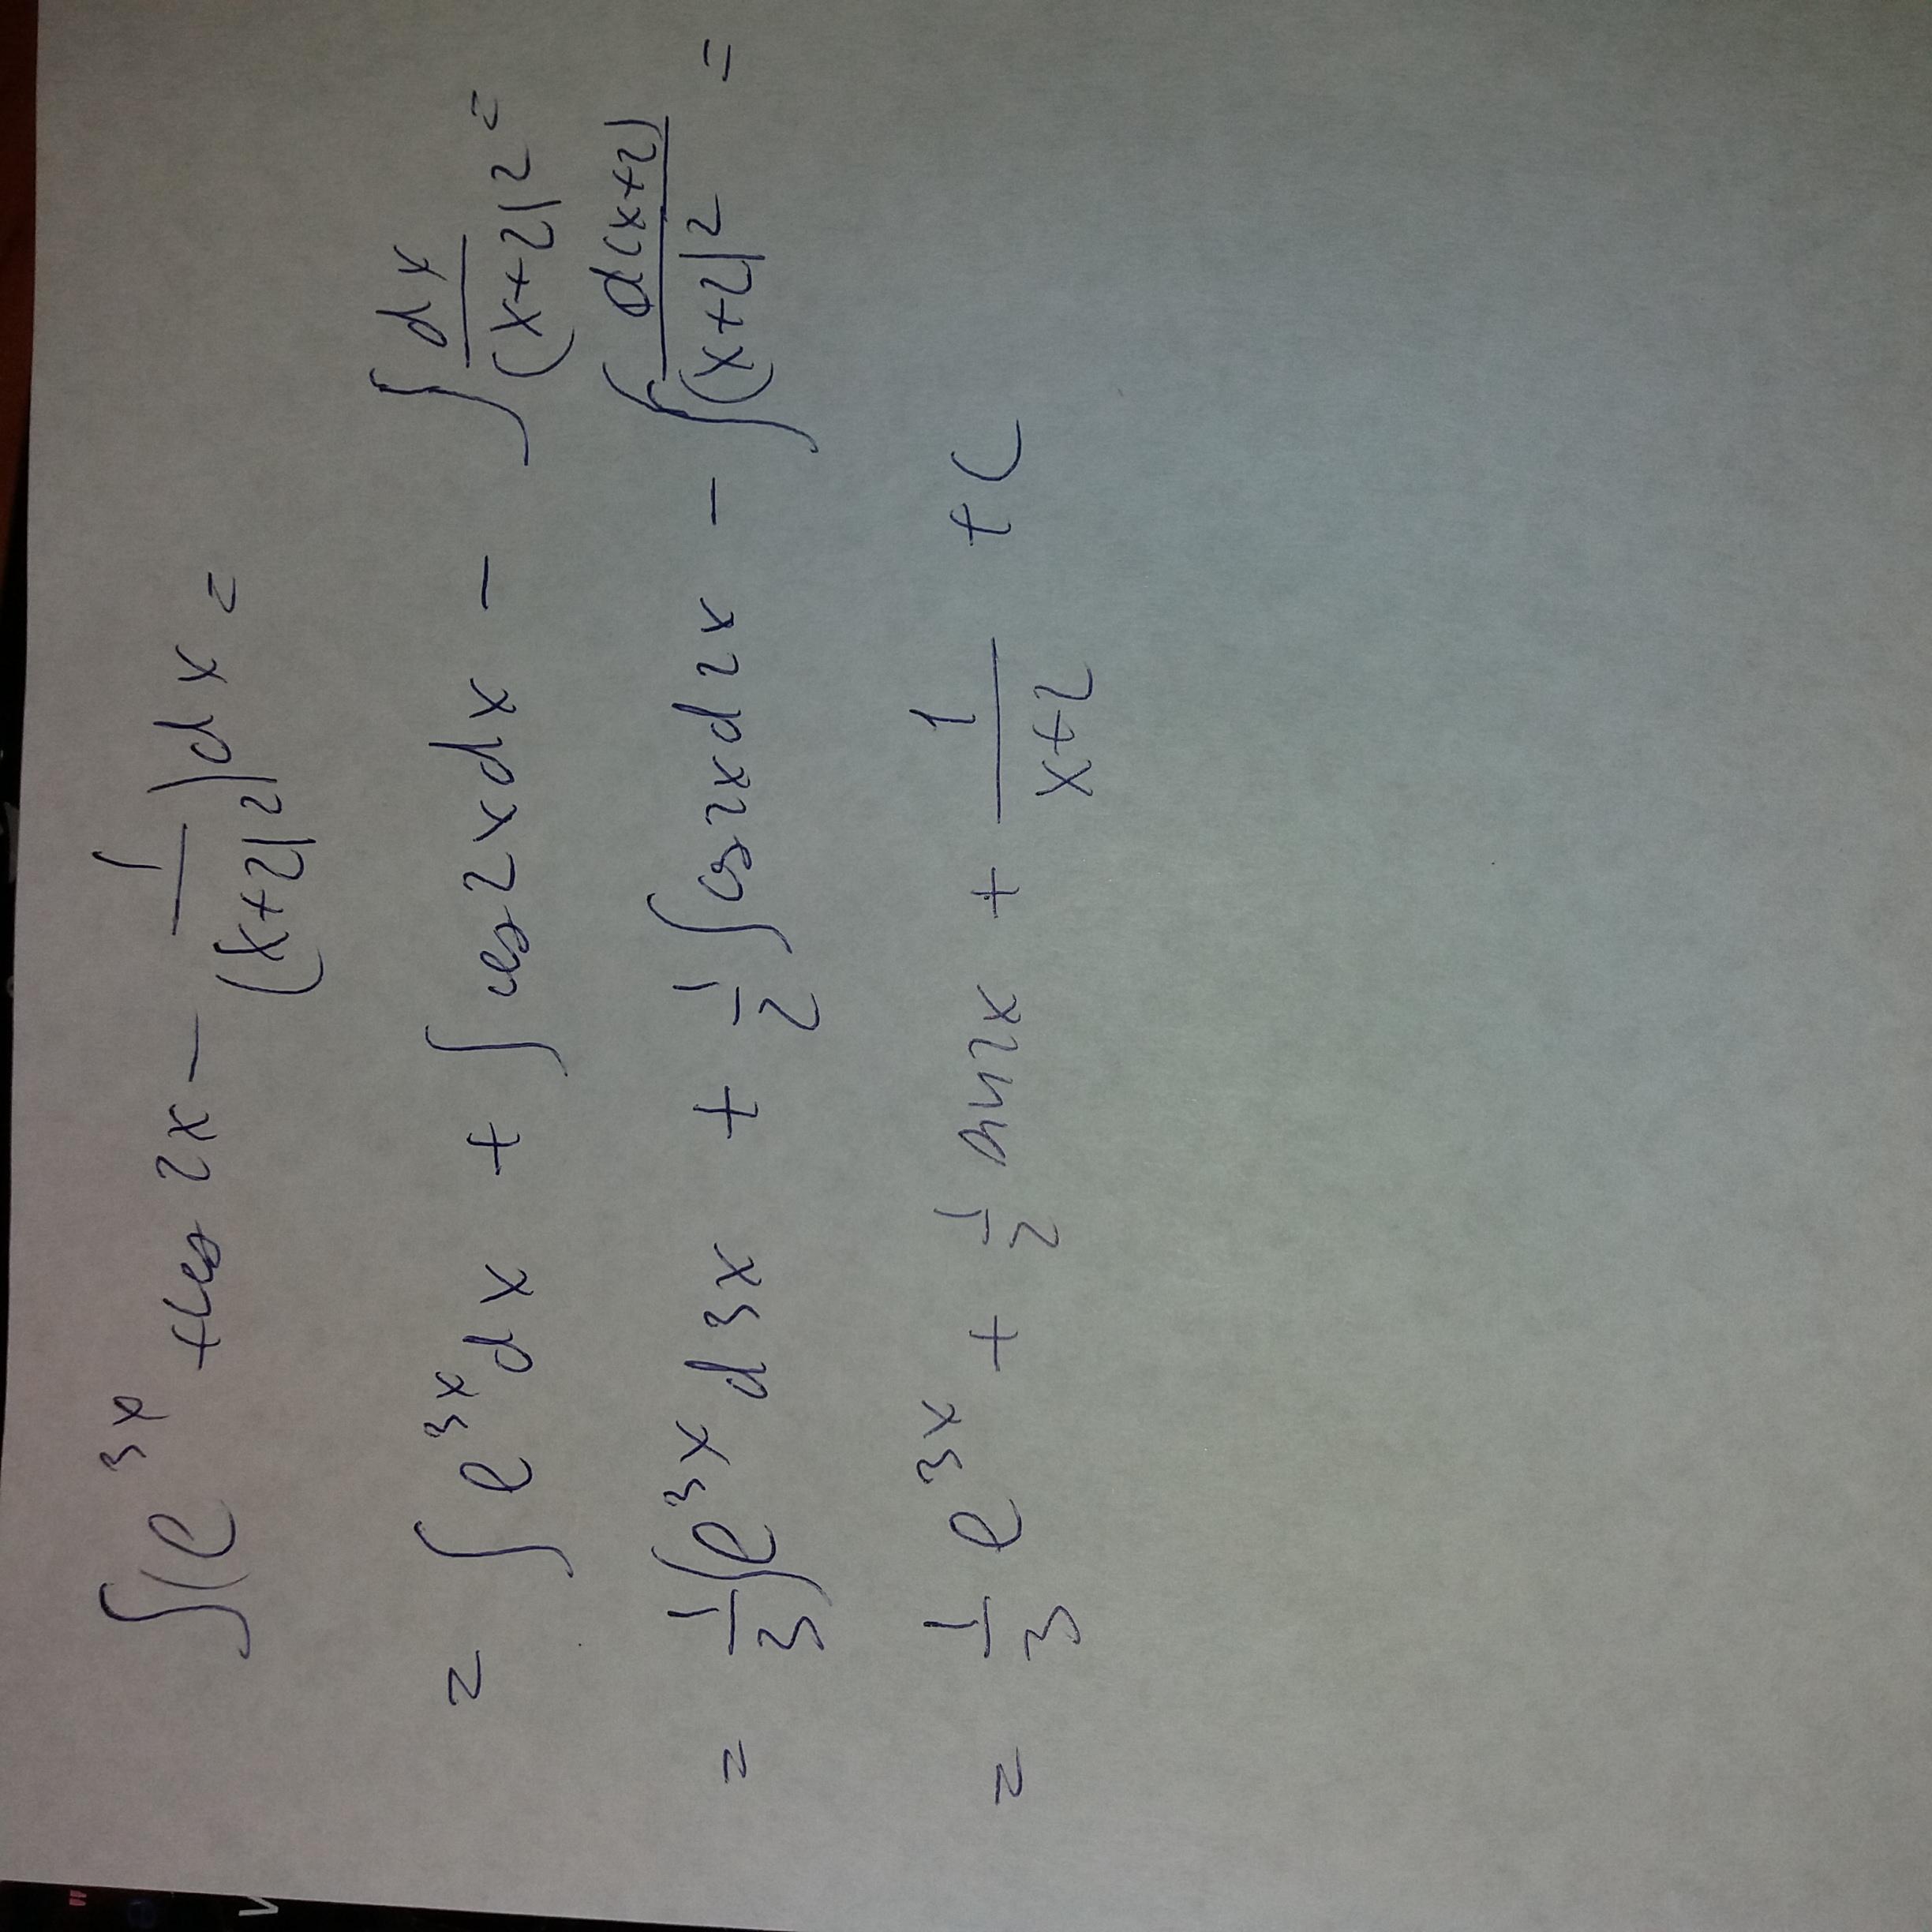 ∫(e^{3x} + cos 2x - \frac{1}{(x+2)^2})dx =
= ∫ e^{3x} dx + ∫ cos 2x dx - ∫ \frac{dx}{(x+2)^2} =
= \frac{1}{3} ∫ e^{3x} d3x + \frac{1}{2} ∫ cos 2x d2x - ∫ \frac{d(x+2)}{(x+2)^2} =
= \frac{1}{3} e^{3x} + \frac{1}{2} sin 2x + \frac{1}{x+2} + C